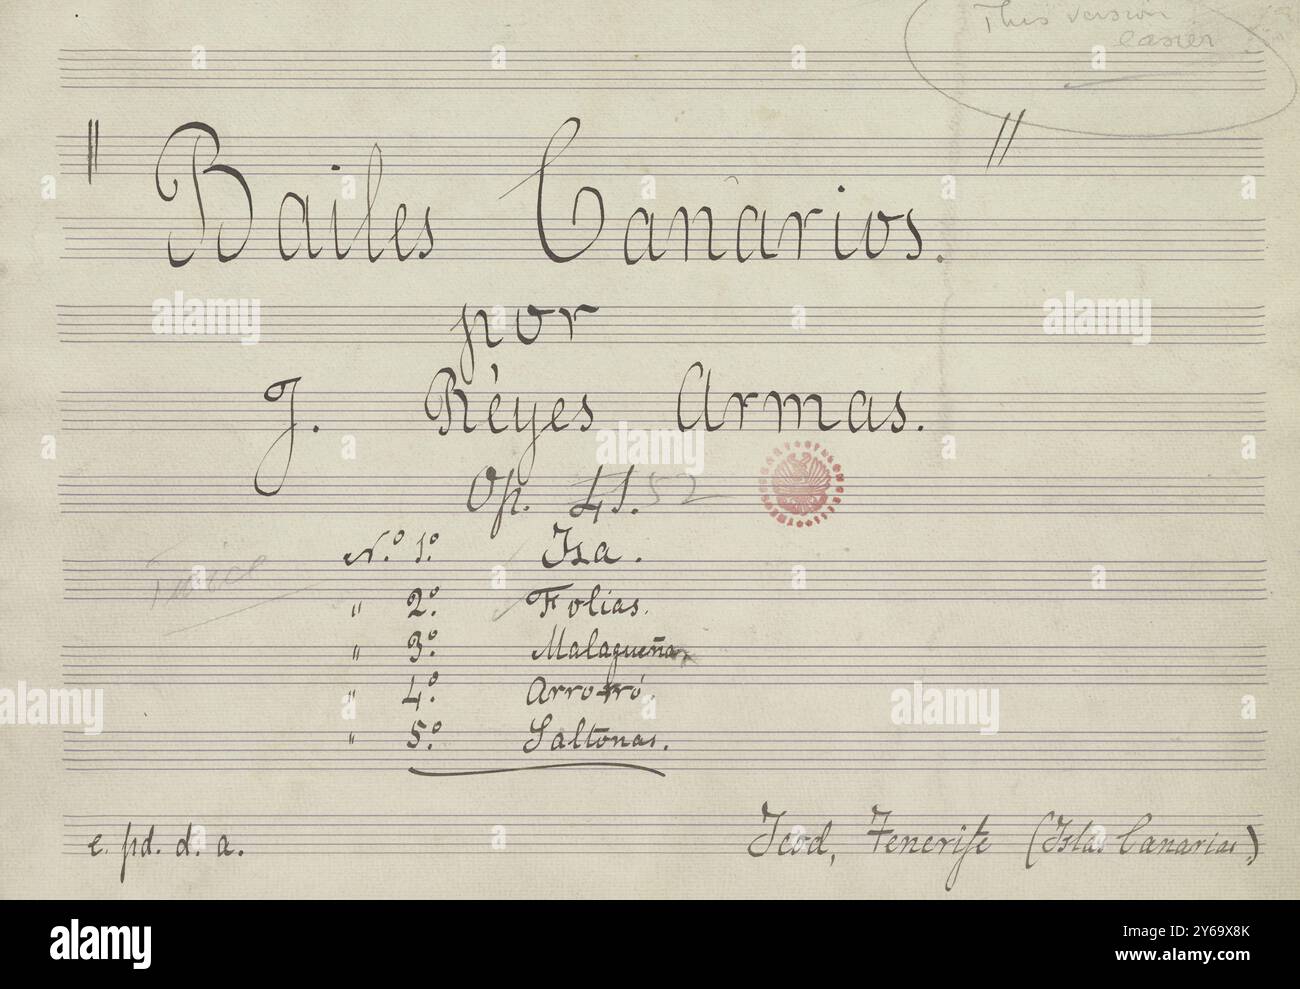 This version
easier
"Bailes Canarios."
por
J. Réyes Armas.
Op. 41. 52
N.º 1º. Isa.
" 2º. Folias.
" 3º. Malagueña.
" 4º. Arrorró.
" 5º. Saltonas.
e. pd. d. a.
Icod, Tenerife (Islas Canarias)
alamy
Image ID: 2Y69X8K
www.alamy.com